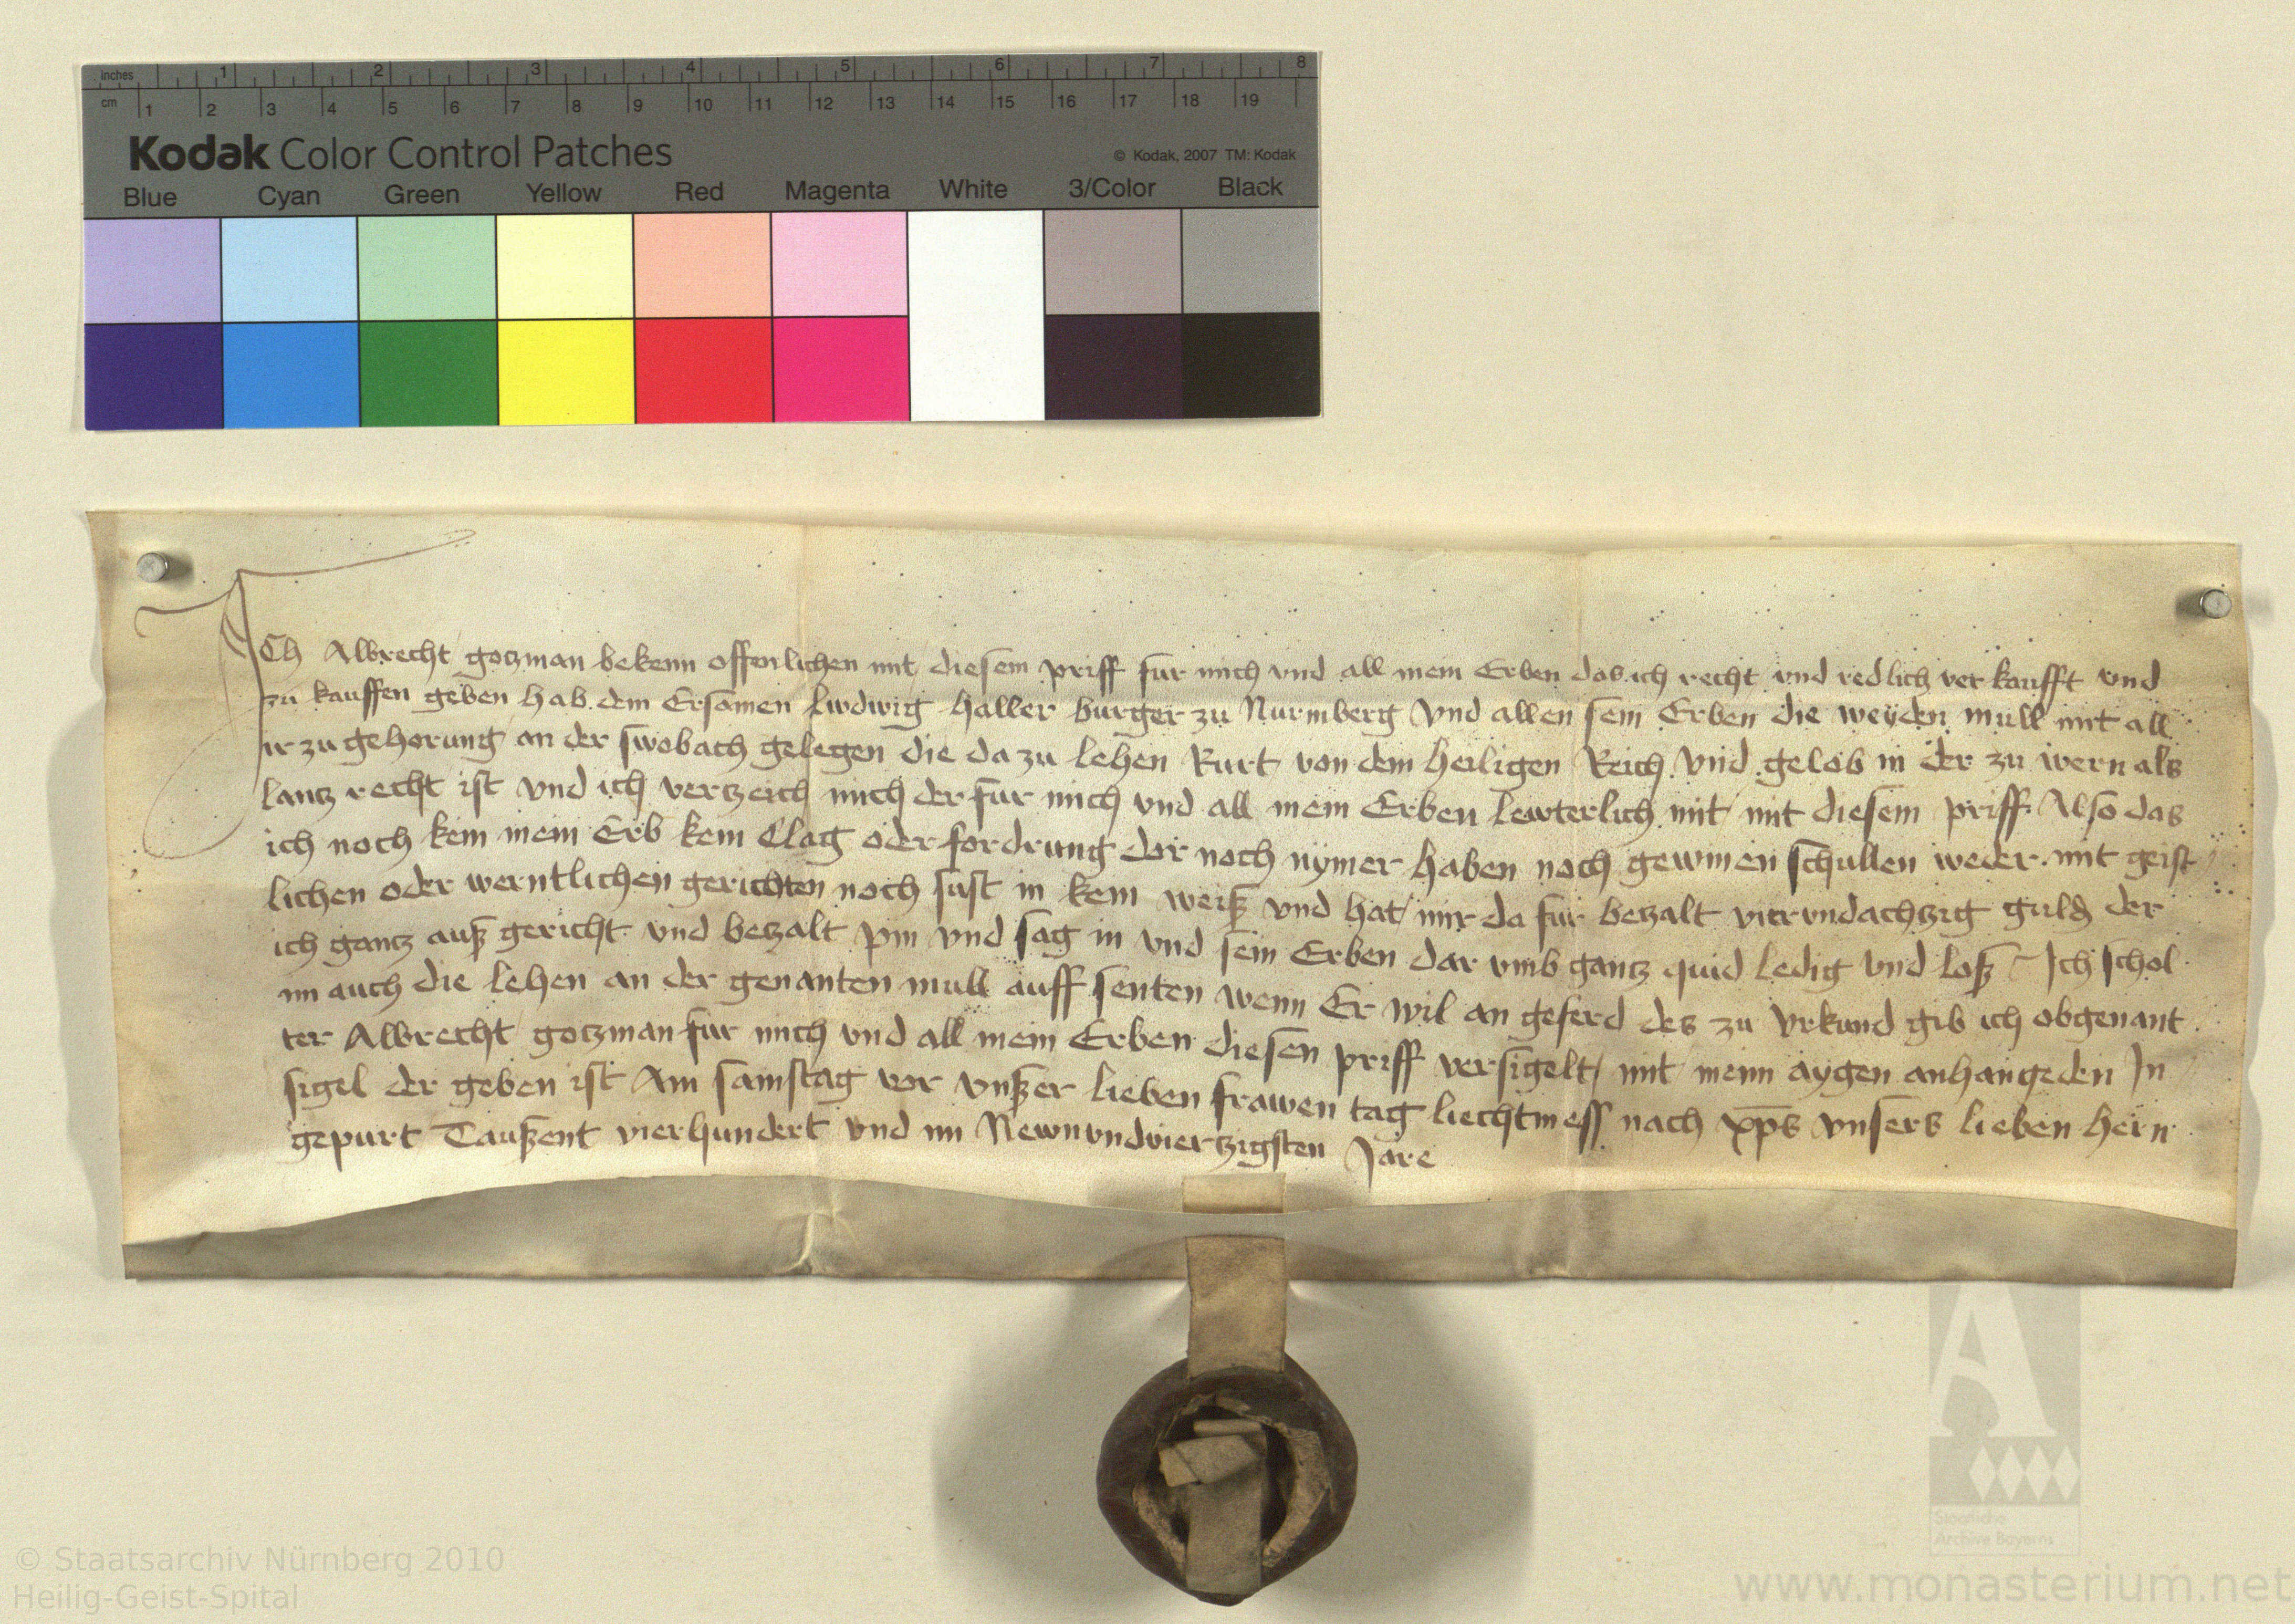 inches 1 2 3 4 5 6 7 8
cm 1 2 3 4 5 6 7 8 9 10 11 12 13 14 15 16 17 18 19
Kodak Color Control Patches
© Kodak, 2007 TM: Kodak
Blue Cyan Green Yellow Red Magenta White 3/Color Black
ICh Albrecht gotzman bekenn offenlichen mit diesem priff fur mich vnd all mein Erben das ich recht vnd redlich ver kaufft vnd
zu kauffen geben hab dem Ersamen ludwig haller burger zu Nurmberg vnd allen sein Erben die weyden mull mit all
ir zu gehorung an der swobach gelegen die da zu lehen Rurt von dem heiligen Reich vnd gelob in der zu wern als
lantz recht ist vnd ich vertzeich mich der fur mich vnd all mein Erben lewterlich mit mit diesem priff Also das
ich noch kein mein Erb kein Clag oder fordrung dor noch nymer haben noch gewinen schullen weder mit geist
lichen oder werntlichen gerichten noch sust in kein weiß vnd hat mir da fur betzalt vierundachtzig guld der
ich gantz auß gericht vnd betzalt pin vnd sag in vnd sein Erben dar vmb gantz quid ledig vnd loß Ich schol
im auch die lehen an der genanten mull auff senten wenn Er wil an geferd des zu vrkund gib ich obgenant
ter Albrecht gotzman fur mich vnd all mein Erben diesen priff versigelt mit meinn aygen anhangeden In
sigel der geben ist Am samstag vor vnßer lieben frawen tag liechtmess nach xps vnsers lieben hern
gepurt Taußent vierhundert vnd im Newnundviertzigsten Jare
© Staatsarchiv Nürnberg 2010
Heilig-Geist-Spital
Staatliche
Archive Bayerns
www.monasterium.net